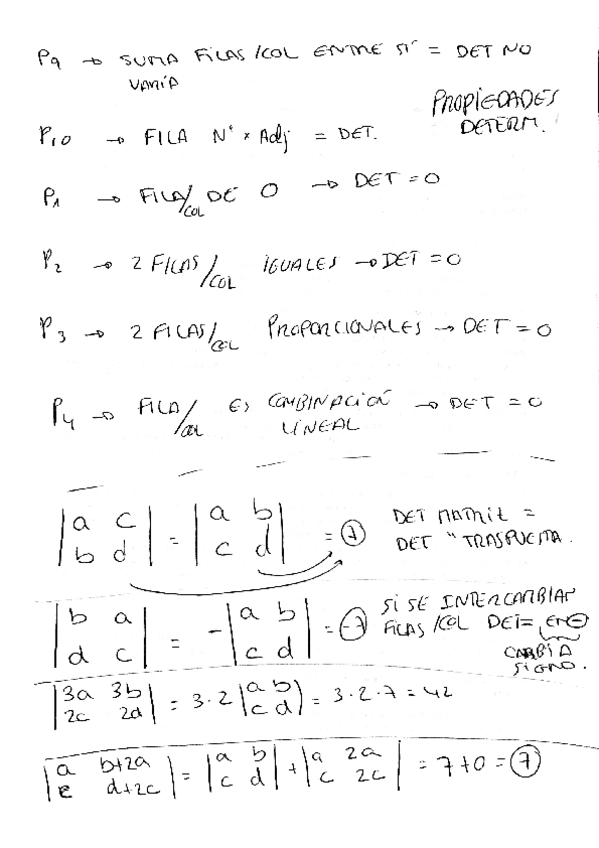 P9 → SUMA FILAS/COL ENTRE SÍ = DET NO
VARÍA
PROPIEDADES
DETERM.
P10 → FILA Nº × Adj = DET.
P1 → FILA/COL DE 0 → DET = 0
P2 → 2 FILAS/COL IGUALES → DET = 0
P3 → 2 FILAS/COL PROPORCIONALES → DET = 0
P4 → FILA/COL ES COMBINACIÓN → DET = 0
LINEAL
|a c| = |a b| = 7 DET MATRIZ =
|b d| |c d| DET " TRASPUESTA.
|b a| = - |a b| = -7 SI SE INTERCAMBIAN
|d c| |c d| FILAS/COL DET =
CAMBIA
SIGNO.
|3a 3b| = 3·2 |a b| = 3·2·7 = 42
|2c 2d| |c d|
|a b+2a| = |a b| + |a 2a| = 7+0 = 7
|c d+2c| |c d| |c 2c|